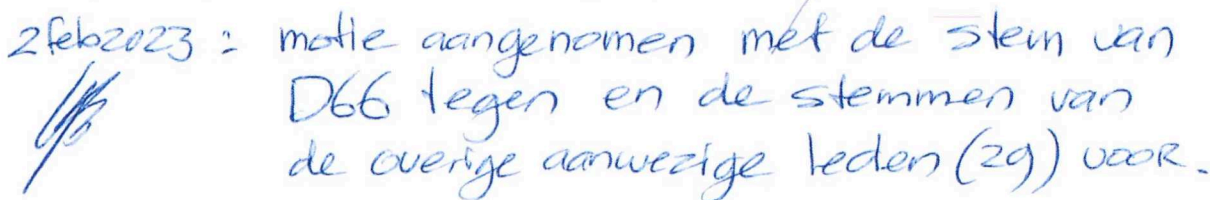 2feb2023: motie aangenomen met de stem van
D66 tegen en de stemmen van
de overige aanwezige leden (29) VOOR.